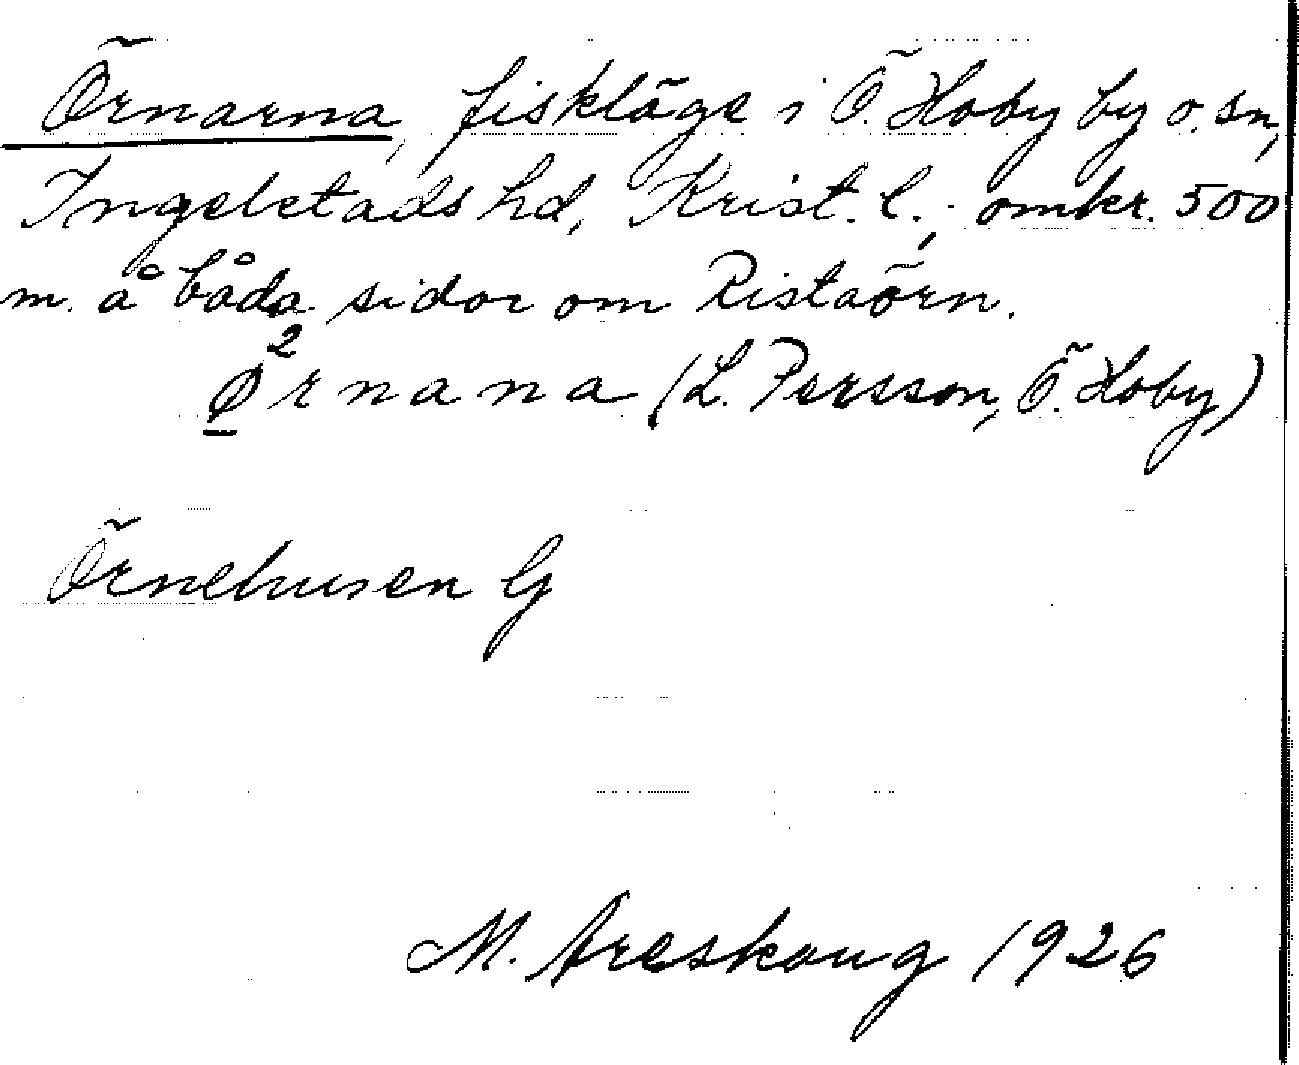 Örnarna, fiskläge i Ö. Hoby by o. sn,
Ingelstads hd, Krist. l.; omkr. 500
m. å båda sidor om Ristaörn.
Ø²rnana (L. Persson, Ö. Hoby)
Örnehusen G
M. Areskoug 1926